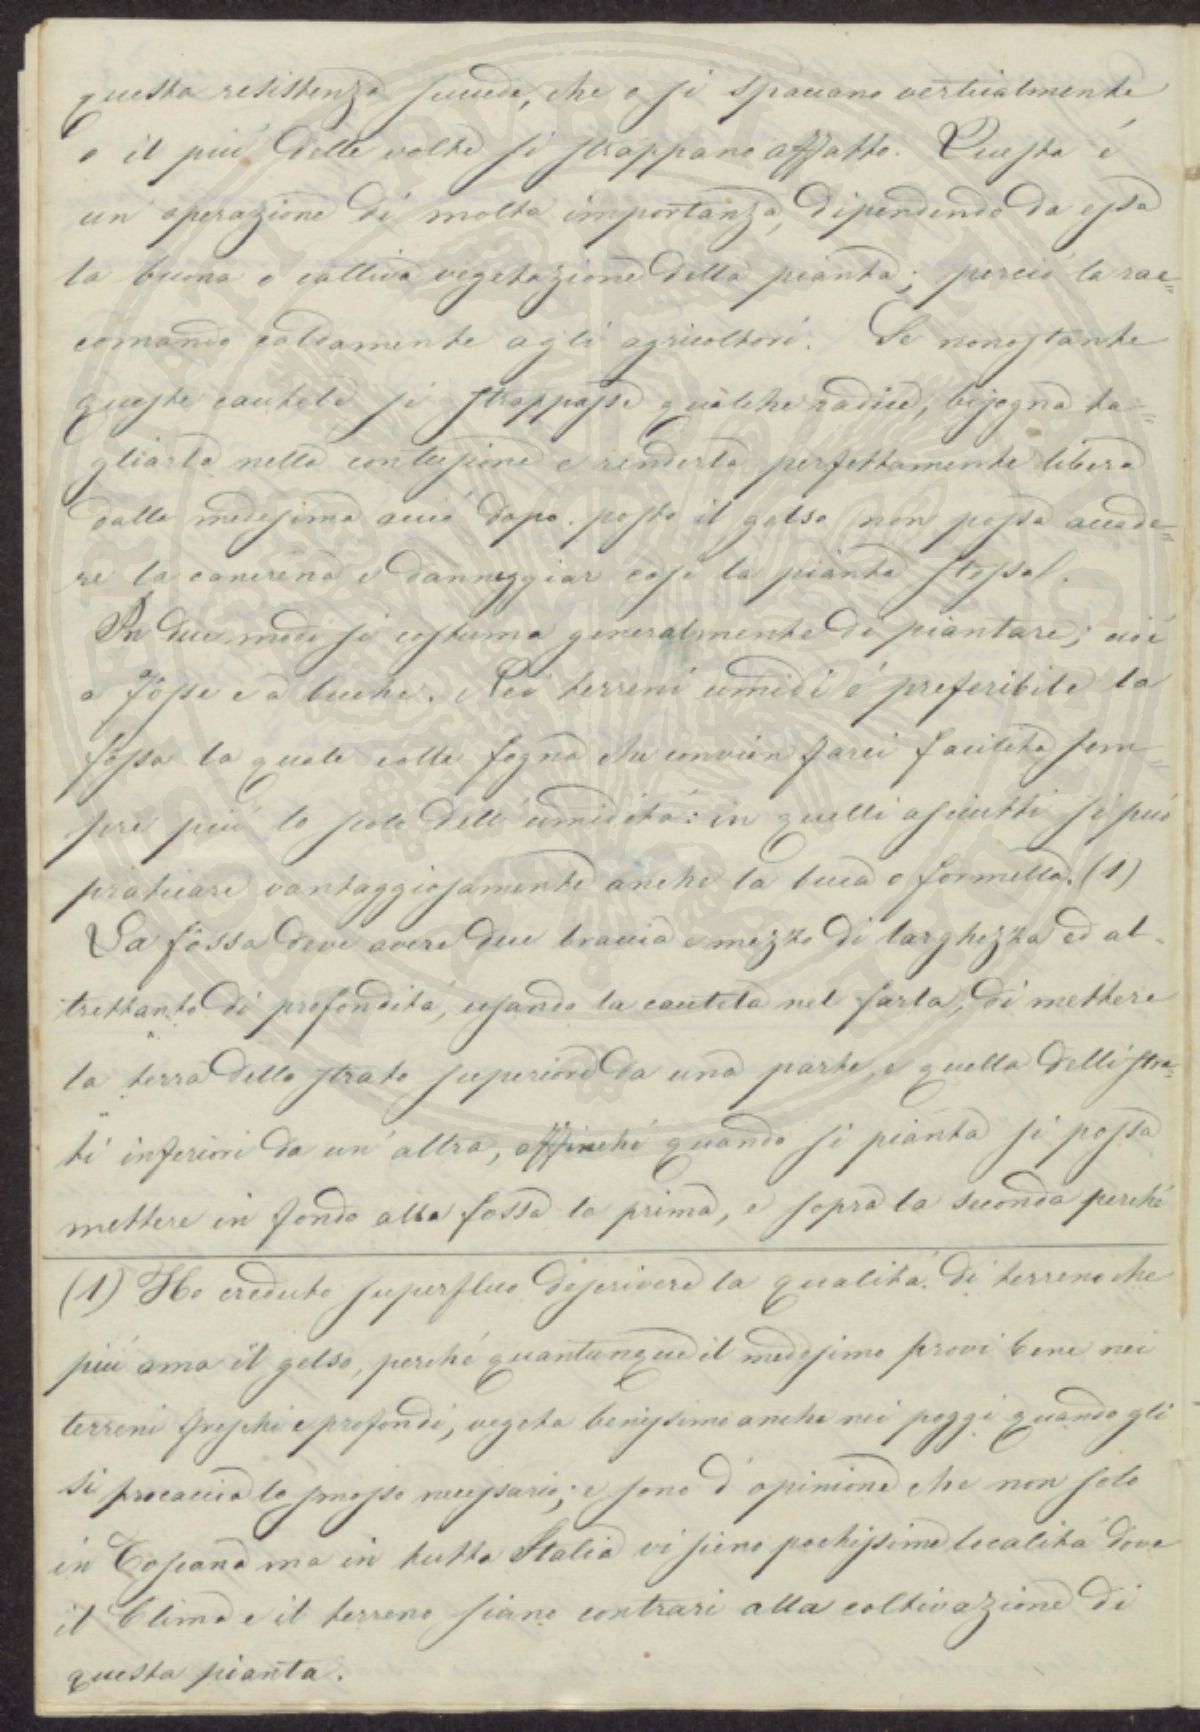 questa resistenza succede, che o si spaccano verticalmente
o il piú delle volte si strappano affatto. Questa é
un' operazione di molta importanza, dipendendo da essa
la buona o cattiva vegetazione della pianta; perció la rac=
comando caldamente agli agricoltori. Se nonostante
queste cautele si strappasse qualche radice, bisogna ta=
gliarla nella contusione e renderla perfettamente libera
dalla medesima acció dopo posto il gelso non possa accade=
re la cancrena e danneggiar cosí la pianta stessa.
In due modi si costuma generalmente di piantare; cioé
a fosse e a buche. Nei terreni umidi é preferibile la
fossa la quale colla fogna che convien farci facilita sem=
pre piú lo scolo dell' umiditá: in quelli asciutti si può
praticare vantaggiosamente anche la buca o formella. (1)
La fossa deve avere due braccia e mezzo di larghezza ed al-
trettanto di profonditá, usando la cautela nel farla, di mettere
la terra dello strato superiore da una parte, e quella delli stra=
ti inferiori da un' altra, affinché quando si pianta si possa
mettere in fondo alla fossa la prima, e sopra la seconda perché
(1) Ho creduto superfluo descrivere la qualitá di terreno che
piú ama il gelso, perché quantunque il medesimo provi bene nei
terreni freschi e profondi, vegeta benissimo anche nei poggi quando gli
si procaccia lo smosso necessario; e sono d' opinione che non solo
in Toscana ma in tutta Italia vi sieno pochissime localitá dove
il Clima e il terreno siano contrari alla coltivazione di
questa pianta.